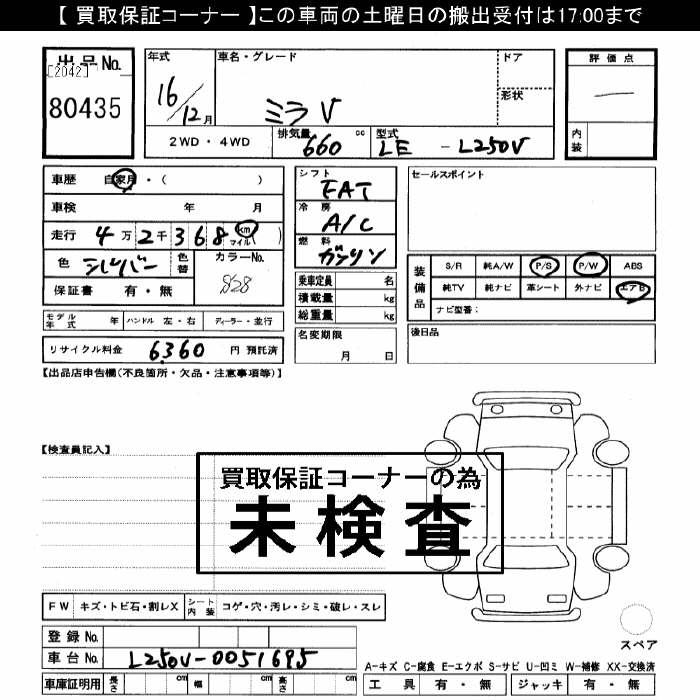 【 買取保証コーナー 】この車両の土曜日の搬出受付は17:00まで
出品No.
[2042]
80435
年式
16/12月
車名・グレード
ミラ V
ドア
形状
評価点
—
内装
2WD・4WD
排気量 660 cc
型式 LE - L250V
車歴 自家用・( )
車検 年 月
走行 4万2千368 km マイル ( )
色 シルバー 色替
カラーNo. S28
保証書 有・無
モデル年式 年 ハンドル 左・右 ディーラー・並行
リサイクル料金 6,360 円 預託済
シフト FAT
冷房 A/C
燃料 ガソリン
乗車定員 名
積載量 kg
総重量 kg
名変期限
月 日
セールスポイント
装備品
S/R 純A/W P/S P/W ABS
純TV 純ナビ 革シート 外ナビ エアB
ナビ型番：
後日品
【出品店申告欄(不良箇所・欠品・注意事項等)】
【検査員記入】
買取保証コーナーの為
未検査
FW キズ・トビ石・割レX
シート内装 コゲ・穴・汚レ・シミ・破レ・スレ
登録No.
車台No. L250V-0051695
車庫証明用 長さ cm 幅 cm 高さ cm
スペア
A-キズ C-腐食 E-エクボ S-サビ U-凹ミ W-補修 XX-交換済
工具 有・無 ジャッキ 有・無